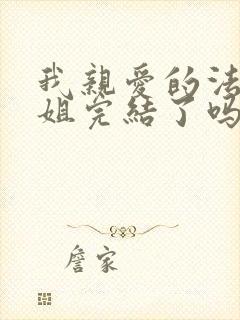 我親愛的法
姐完結了吗
詹家